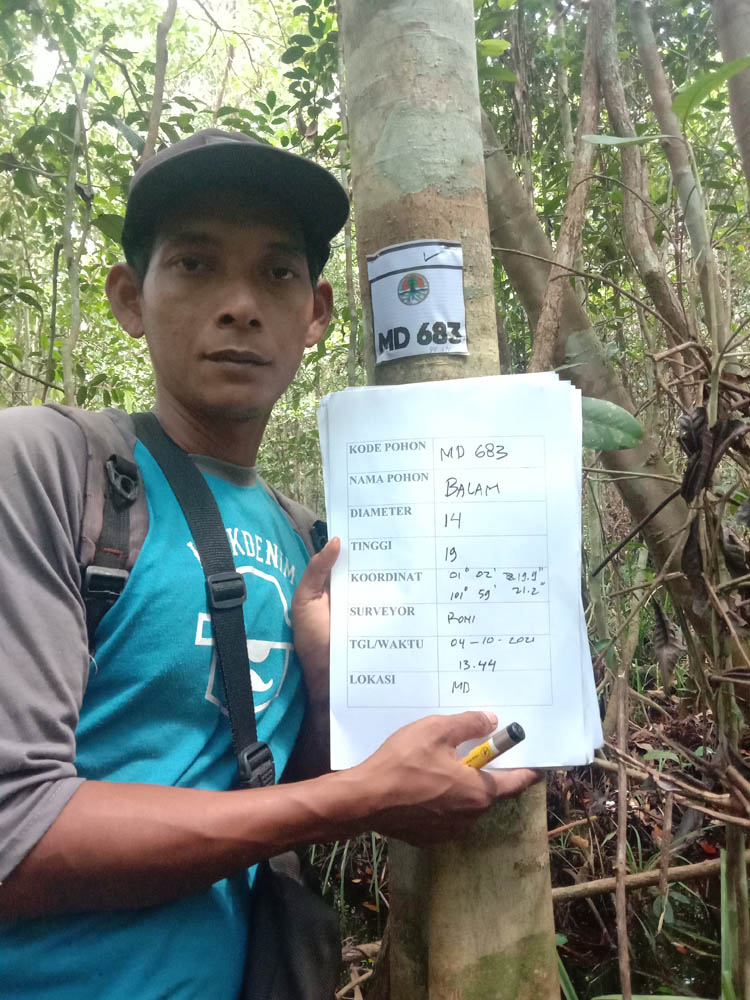 MD 683
KODE POHON MD 683
NAMA POHON BALAM
DIAMETER 14
TINGGI 19
KOORDINAT 01° 02' 19.9"
101° 59' 21.2"
SURVEYOR ROMI
TGL/WAKTU 04-10-2021
13.44
LOKASI MD